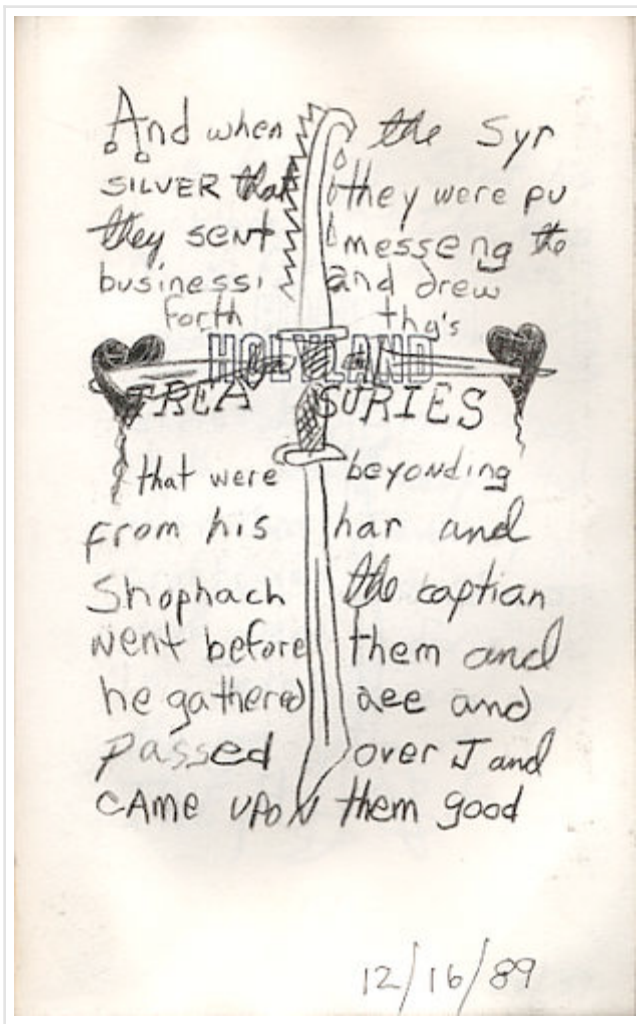 And when the Syr
SILVER that they were pu
they sent messeng the
business, and drew
forth thy's
HOLYLAND
TREASURIES
that were beyonding
from his har and
Shophach the captian
went before them and
he gathered aee and
passed over J and
CAME UPON them good
12/16/89